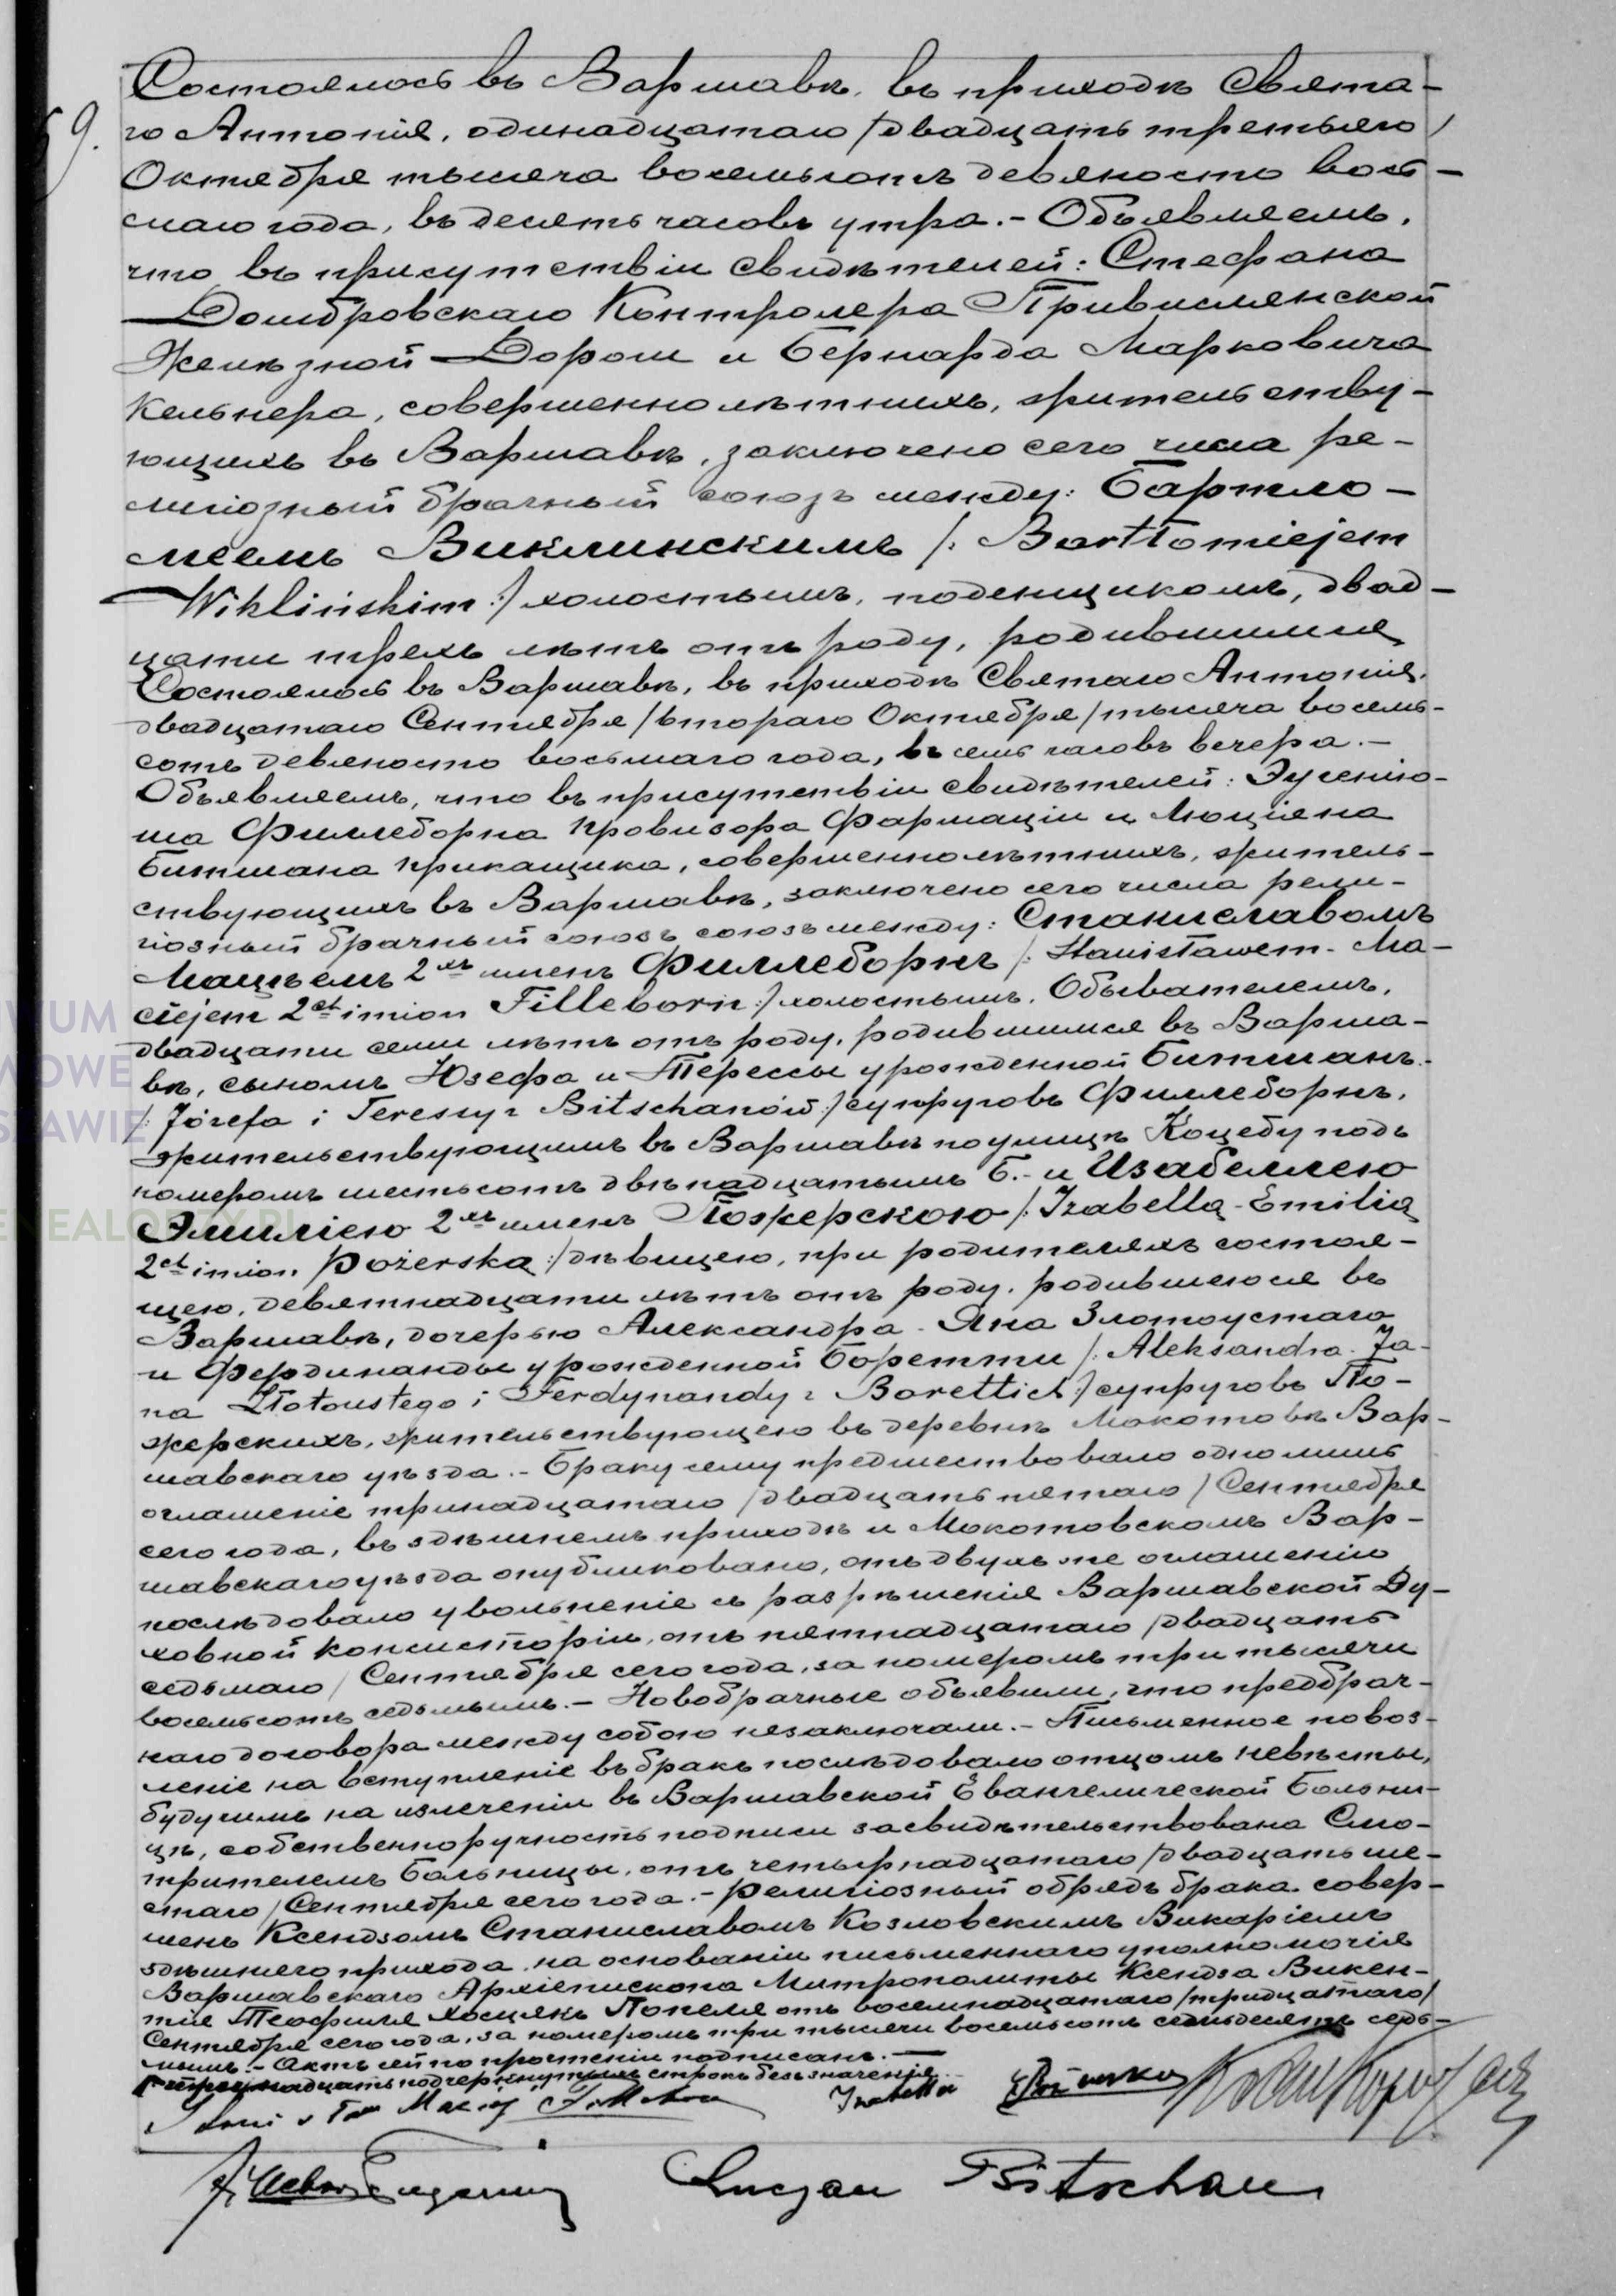 59.
Состоялось въ Варшавѣ, въ приходѣ Свята-
го Антонія, одинадцатаго /двадцать третьяго/
Октября тысяча восемьсотъ девяносто вось-
маго года, въ десять часовъ утра.- Объявляемъ,
что въ присутствіи свидѣтелей: Стефана
Домбровскаго Контролера Привислянской
Желѣзной Дороги и Бернарда Марковича
Кельнера, совершеннолѣтнихъ, жительству-
ющихъ въ Варшавѣ, заключено сего числа ре-
лигіозный брачный союзъ между: Бартло-
меемъ Виклинскимъ /: Bartłomiejem
Wiklińskim :/ холостымъ, поденщикомъ, двад-
цати трехъ лѣтъ отъ роду, родившимся
Состоялось въ Варшавѣ, въ приходѣ Святаго Антонія,
двадцатаго Сентября /втораго Октября/ тысяча восемь-
сотъ девяносто восьмаго года, въ семь часовъ вечера.-
Объявляемъ, что въ присутствіи свидѣтелей: Эугеніу-
ша Филлеборна Провизора Фармаціи и Люціяна
Битшана прикащика, совершеннолѣтнихъ, житель-
ствующихъ въ Варшавѣ, заключено сего числа рели-
гіозный брачный союзъ союзъ между: Станиславомъ
Мацѣемъ 2хъ именъ Филлеборнъ /: Stanisławem-Ma-
ciejem 2ch imion Filleborn :/ холостымъ, Обывателемъ,
двадцати семи лѣтъ отъ роду, родившимся въ Варша-
вѣ, сыномъ Юзефа и Терессы урожденной Битшанъ
/: Józefa i Teressy z Bitschanów :/ супруговъ Филлеборнъ,
жительствующимъ въ Варшавѣ по улицѣ Коцебу подъ
номеромъ шестьсотъ двѣнадцатымъ Б.- и Изабеллею
Эмиліею 2хъ именъ Пожерскою /: Izabellą-Emilią
2ch imion Pożerską :/ дѣвицею, при родителяхъ состоя-
щею, девятнадцати лѣтъ отъ роду, родившеюся въ
Варшавѣ, дочерью Александра-Яна Златоустаго
и Фердинанды урожденной Боретти /: Aleksandra-Ja-
na Złotoustego i Ferdynandy z Borettich :/ супруговъ По-
жерскихъ, жительствующею въ деревнѣ Мокотовѣ Вар-
шавскаго уѣзда.- Браку сему предшествовало одно лишь
оглашеніе тринадцатаго /двадцать пятаго/ Сентября
сего года, въ здѣшнемъ приходѣ и Мокотовскомъ Вар-
шавскаго уѣзда опубликовано, отъ двухъ же оглашеній
послѣдовало увольненіе съ разрѣшенія Варшавской Ду-
ховной Консисторіи, отъ пятнадцатаго /двадцать
седьмаго/ Сентября сего года, за номеромъ три тысячи
восемьсотъ седьмымъ.- Новобрачные объявили, что предбрач-
наго договора между собою незаключали.- Письменное позво-
леніе на вступленіе въ бракъ послѣдовало отцомъ невѣсты,
будучимъ на излеченіи въ Варшавской Евангелической Больни-
цѣ, собственноручность подписи засвидѣтельствована Смо-
трителемъ Больницы, отъ четырнадцатаго /двадцать ше-
стаго/ Сентября сего года.- Религіозный обрядъ брака совер-
шенъ Ксендзомъ Станиславомъ Козловскимъ Викаріемъ
здѣшняго прихода на основаніи письменнаго уполномочія
Варшавскаго Архіепископа Митрополиты Ксендза Викен-
тія Теофиля Хосцякъ Попеля отъ восемнадцатаго /тридцатаго/
Сентября сего года, за номеромъ три тысячи восемьсотъ семьдесятъ седь-
мымъ.- Актъ сей по прочтеніи подписанъ.-
тринадцать подчеркнутыхъ строкъ безъ значенія.
Maciej Izabella
Lucyan Bitschan